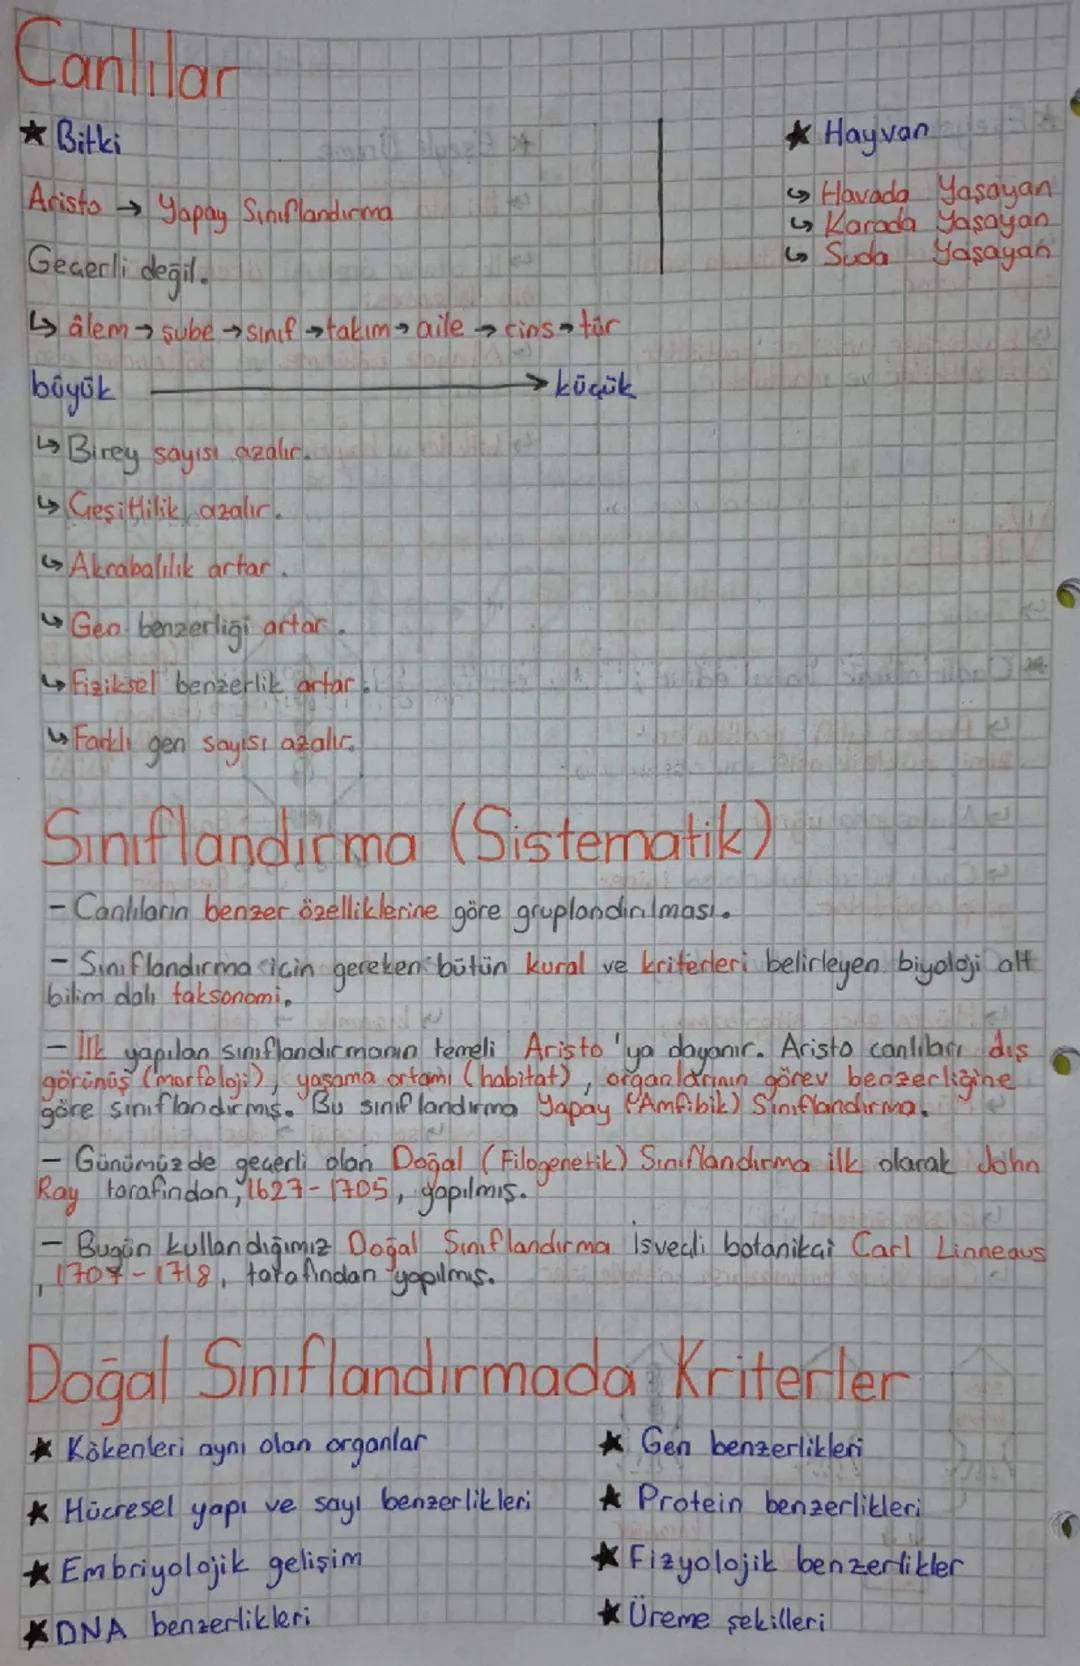 Canlılar
★ Bitki
★ Hayvan
Aristo → Yapay Sınıflandırma
↳ Havada Yaşayan
↳ Karada Yaşayan
↳ Suda Yaşayan
Geçerli değil.
↳ âlem → şube → sınıf → takım → aile → cins → tür
büyük → küçük
↳ Birey sayısı azalır.
↳ Çeşitlilik azalır.
↳ Akrabalılık artar.
↳ Gen benzerliği artar.
↳ Fiziksel benzerlik artar.
↳ Farklı gen sayısı azalır.
Sınıflandırma (Sistematik)
- Canlıların benzer özelliklerine göre gruplandırılması.
- Sınıflandırma için gereken bütün kural ve kriterleri belirleyen biyoloji alt
bilim dalı taksonomi.
- İlk yapılan sınıflandırmanın temeli Aristo'ya dayanır. Aristo canlıları dış
görünüş (morfoloji), yaşama ortamı (habitat), organlarının görev benzerliğine
göre sınıflandırmış. Bu sınıflandırma Yapay (Amfibik) Sınıflandırma.
- Günümüzde geçerli olan Doğal (Filogenetik) Sınıflandırma ilk olarak John
Ray tarafından, 1627-1705, yapılmış.
- Bugün kullandığımız Doğal Sınıflandırma İsveçli botanikçi Carl Linneaus
, 1707-1718, tarafından yapılmış.
Doğal Sınıflandırmada Kriterler
★ Kökenleri aynı olan organlar
★ Gen benzerlikleri
★ Hücresel yapı ve sayı benzerlikleri
★ Protein benzerlikleri
★ Embriyolojik gelişim
★ Fizyolojik benzerlikler
★ DNA benzerlikleri
★ Üreme şekilleri